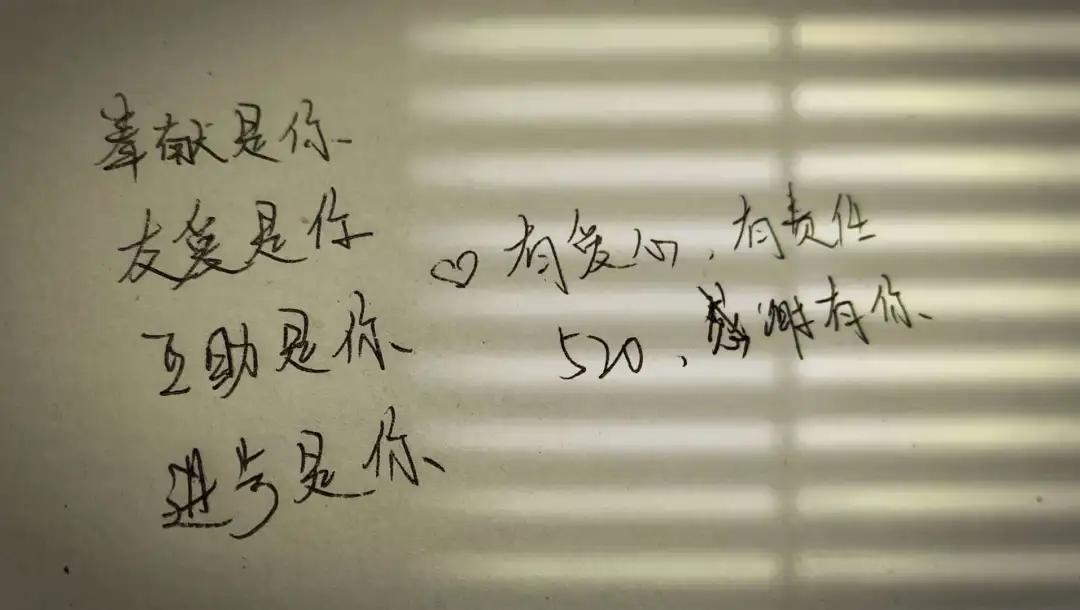 奉献是你
友爱是你
互助是你
进步是你
♡有爱心,有责任
520,感谢有你